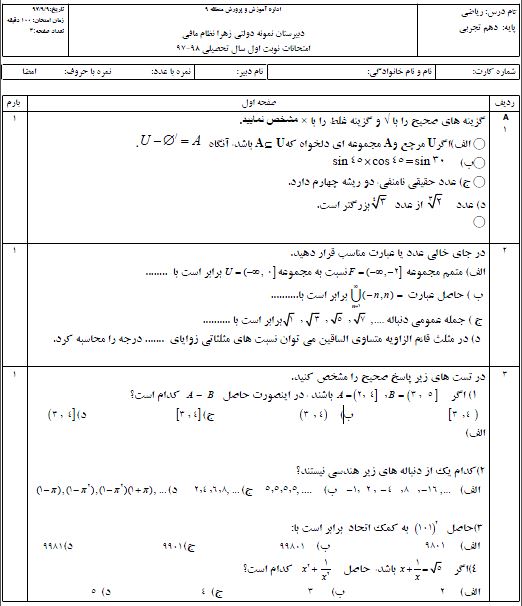 نام درس: ریاضی
پایه: دهم تجربی
اداره آموزش و پرورش منطقه ۹
دبیرستان نمونه دولتی زهرا نظام مافی
امتحانات نوبت اول سال تحصیلی ۹۸-۹۷
تاریخ:۹۷/۹/۹
زمان امتحان: ۱۰۰ دقیقه
تعداد صفحه:۳
شماره کارت: نام و نام خانوادگی: نام دبیر: نمره با عدد: نمره با حروف: امضا
ردیف صفحه اول بارم
A ۱ گزینه های صحیح را با √ و گزینه غلط را با × مشخص نمایید. ۱
الف)اگر U مرجع و A مجموعه ای دلخواه که A ⊆ U باشد، آنگاه U − ∅′ = A .
ب) sin ۴۵ × cos ۴۵ = sin ۳۰
ج) عدد حقیقی نامنفی، دو ریشه چهارم دارد.
د) عدد از عدد بزرگتر است.
۲ در جای خالی عدد یا عبارت مناسب قرار دهید. ۱
الف) متمم مجموعه F = (−∞, −۲] نسبت به مجموعه U = (−∞, ۰] برابر است با ........
ب ) حاصل عبارت = ⋃(−n, n) برابر است با..........
ج ) جمله عمومی دنباله √۱, √۳, √۵, √۷, .... برابر است با ..........
د) در مثلث قائم الزاویه متساوی الساقین می توان نسبت های مثلثاتی زوایای ....... درجه را محاسبه کرد.
۳ در تست های زیر پاسخ صحیح را مشخص کنید. ۱
۱) اگر A = (۲, ۴] , B = (۳, ۵] باشند ، در اینصورت حاصل A − B کدام است؟
[۳, ۴) ب) (۳, ۴) ج) [۳, ۴] د) (۳, ۴]
الف)
۲)کدام یک از دنباله های زیر هندسی نیستند؟
الف) −۱, ۲, −۴, ۸, −۱۶, ... ب) ۵,۵,۵,۵, .... ج) ۲,۴,۶,۸, ... د) (۱−π), (۱−π²), (۱−π²)(۱+π), ...
۳)حاصل (۱۰۱)² به کمک اتحاد برابر است با:
الف) ۹۸۰۱ ب) ۹۹۸۰۱ ج) ۹۹۰۱ د) ۹۹۸۱
۴)اگر x + ۱/x = √۵ باشد، حاصل x² + ۱/x² کدام است؟
الف) ۲ ب) ۳ ج) ۴ د) ۵